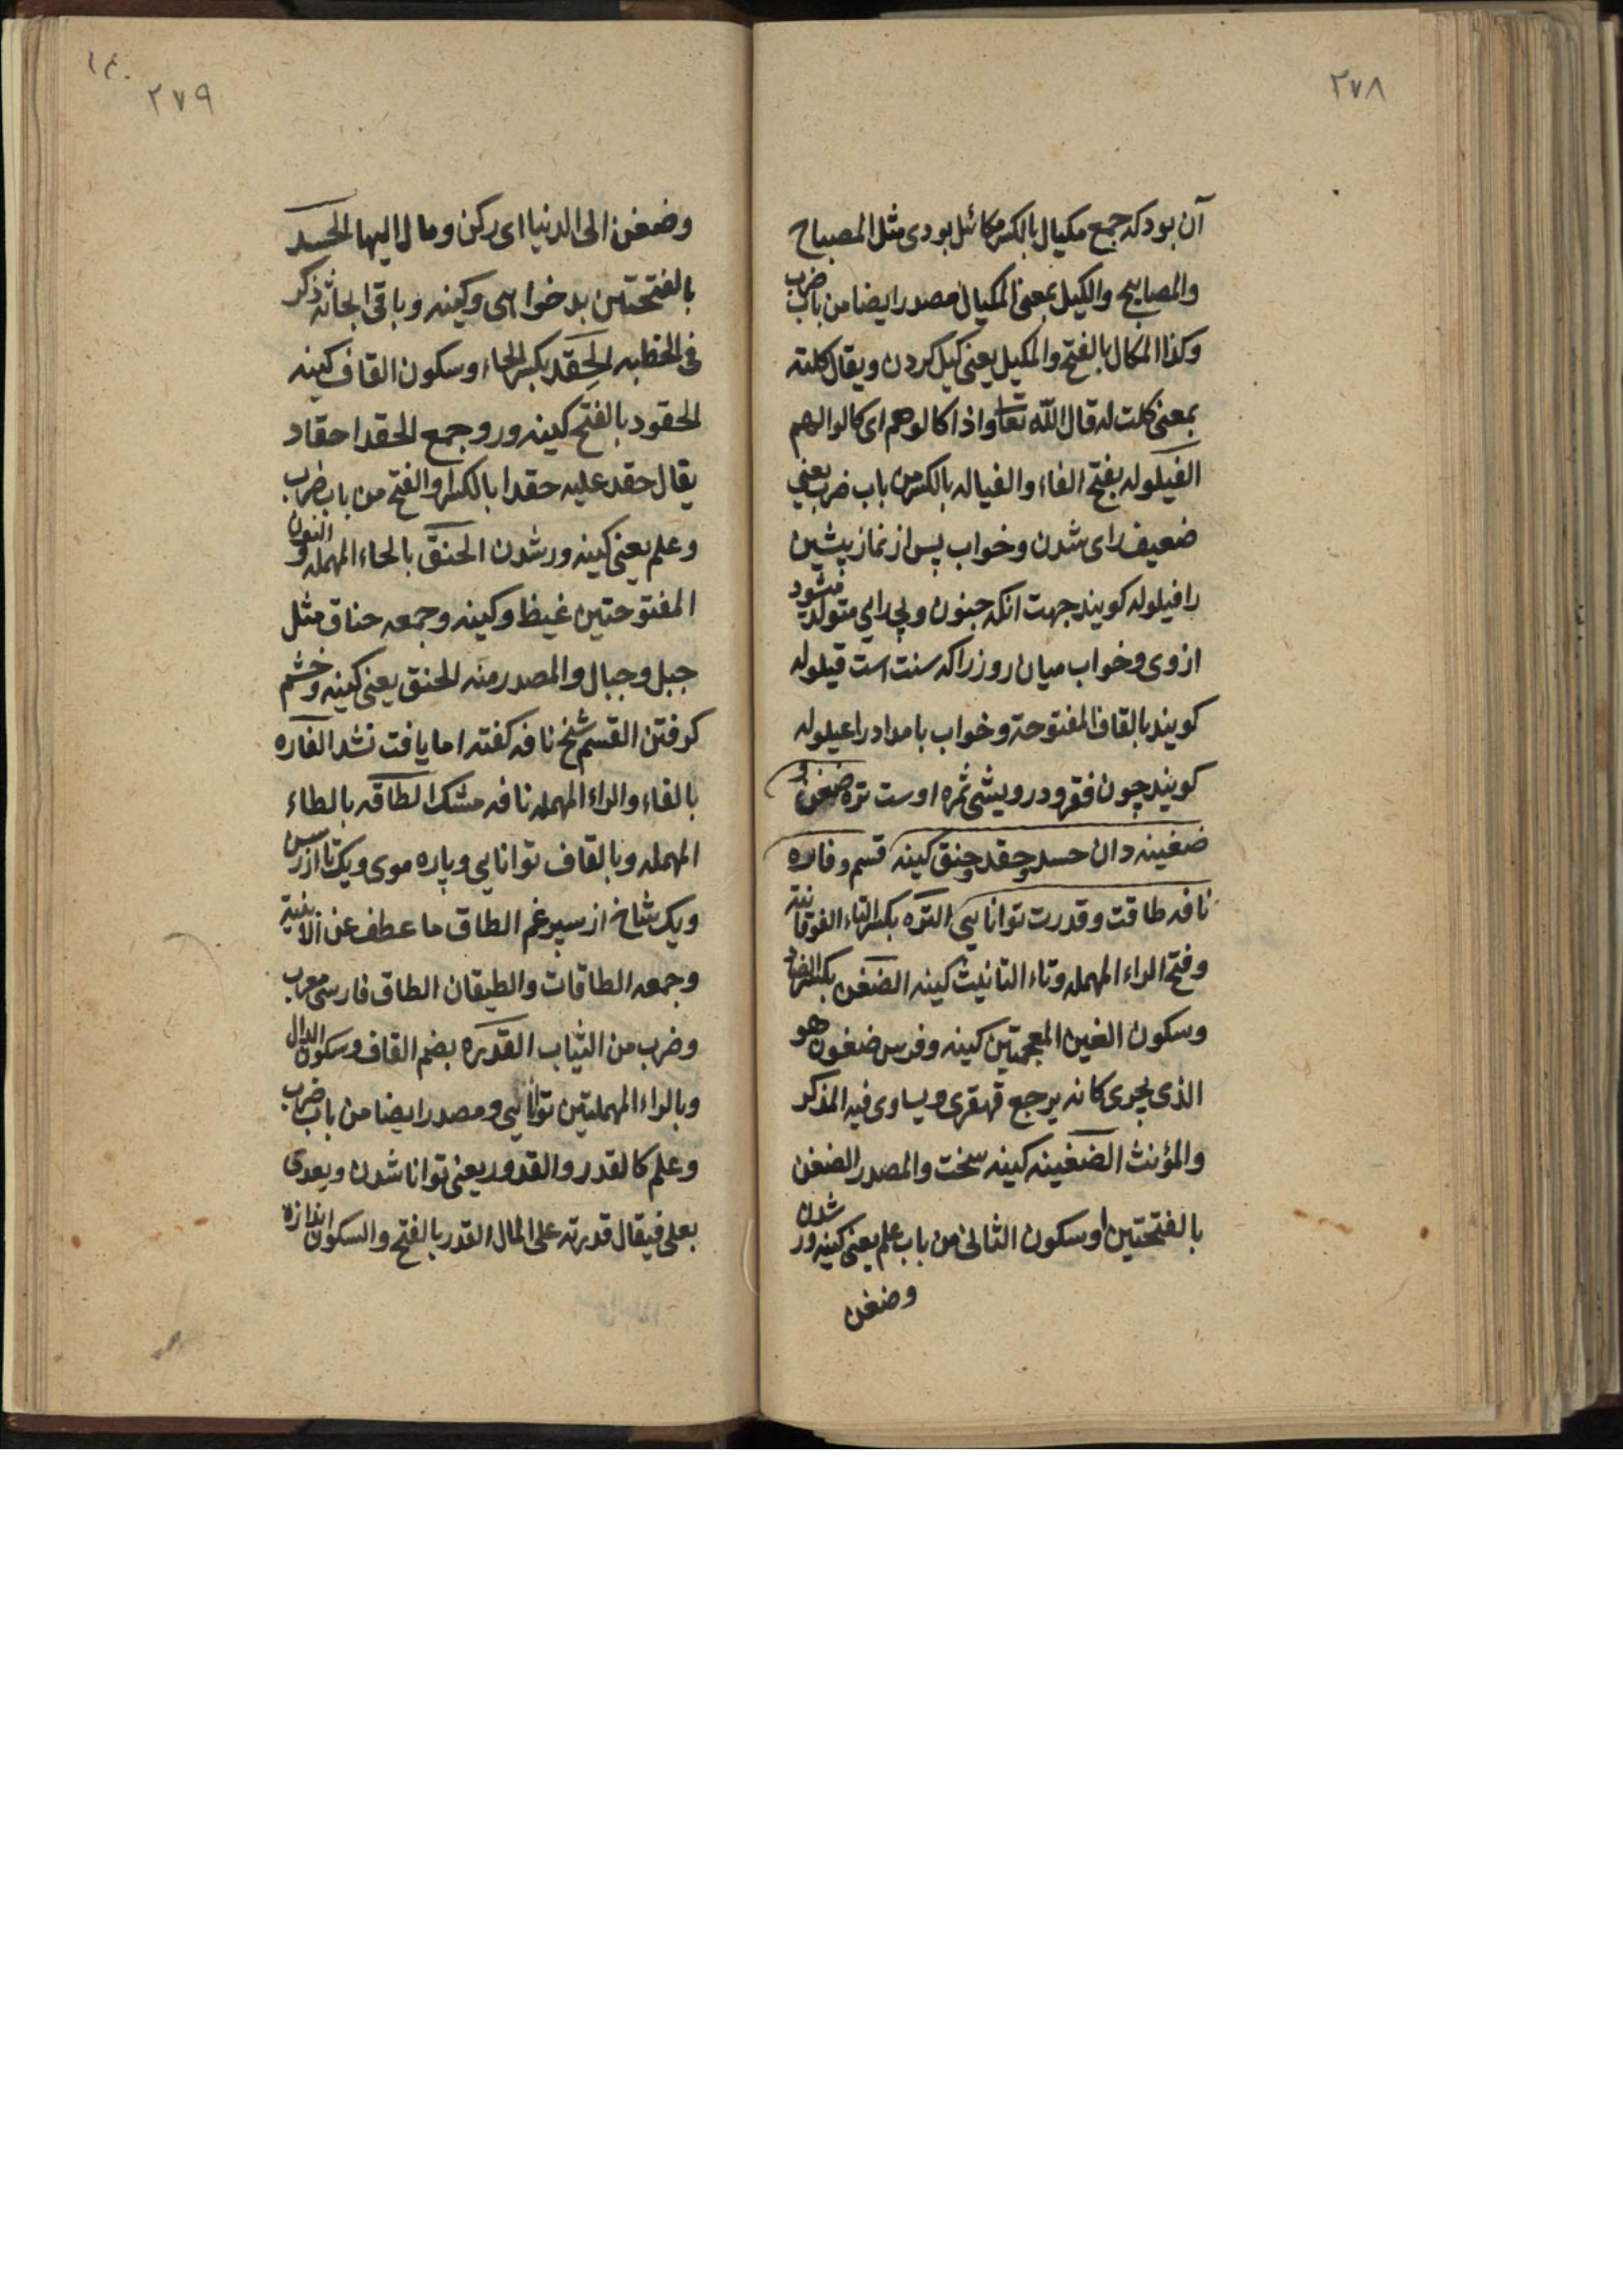 ٢٧٨
آن بود که جمع مکیال بالکسر مکائل بودی مثل المصباح
والمصابیح والکیل بمعنی المکیال مصدر ایضا من باب ضرب
وکذا المکال بالفتح والمکیل یعنی کیل کردن ویقال کلته
بمعنی کلت له قال الله تعا واذا کالوهم ای کالوا لهم
الفیلوله بفتح الفاء والفیاله بالکسر من باب ضرب یعنی
ضعیف رای شدن وخواب پس از نماز پیشین
را فیلوله کویند جهت انکه جنون وبی رایی متولد میشود
از وی وخواب میان روز را که سنت است قیلوله
کویند بالقاف المفتوحة وخواب بامداد را عیلوله
کویند چون فقر ودرویشی ثمره اوست تره ضغن و
ضغینه دان حسد وحقد وحنق کینه قسم وفاره
نافه طاقت وقدرت توانایی التره بکسر التاء الفوقانیة
وفتح الراء المهمله وتاء التانیث کینه الضغن بکسر الضاد
وسکون الغین المعجمتین کینه وفرس ضغون هو
الذی یجری کانه یرجع قهقری ویساوی فیه المذکر
والمؤنث الضغینه کینه سخت والمصدر الضغن
بالفتحتین او سکون الثانی من باب علم یعنی کینه ور شدن
وضغن
١٤٠
٢٧٩
وضغن الی الدنیا ای رکن ومال الیها الحسد
بالفتحتین بد خواهی وکینه وباقی ابحاثه ذکر
فی الخطبه الحقد بکسر الحاء وسکون القاف کینه
الحقود بالفتح کینه ور وجمع الحقد احقاد
یقال حقد علیه حقدا بالکسر او الفتح من باب ضرب
وعلم یعنی کینه ور شدن الحنق بالحاء المهمله والنون
المفتوحتین غیظ وکینه وجمعه حناق مثل
جبل وجبال والمصدر منه الحنق یعنی کینه وخشم
کرفتن القسم شخ نافه کفته اما یافت نشد الفاره
بالفاء والراء المهمله نافه مشک الطاقه بالطاء
المهمله وبالقاف توانایی وپاره موی ویک تا از رسن
ویک شاخ از سپرغم الطاق ما عطف عن الابنیة
وجمعه الطاقات والطیقان الطاق فارسی معرب
وضرب من الثیاب القدره بضم القاف وسکون الدال
وبالراء المهملتین توانایی ومصدر ایضا من باب ضرب
وعلم کالقدر والقدور یعنی توانا شدن ویعدی
بعلی فیقال قدرته علی المال القدر بالفتح والسکون اندازه